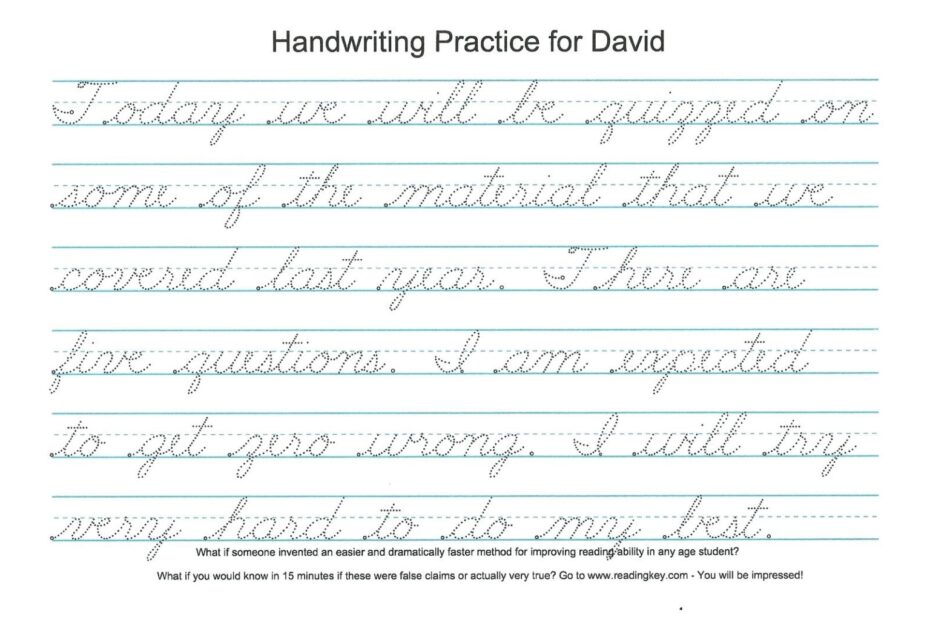 Handwriting Practice for David
Today we will be quizzed on
some of the material that we
covered last year. There are
five questions. I am expected
to get zero wrong. I will try
very hard to do my best.
What if someone invented an easier and dramatically faster method for improving reading ability in any age student?
What if you would know in 15 minutes if these were false claims or actually very true? Go to www.readingkey.com - You will be impressed!